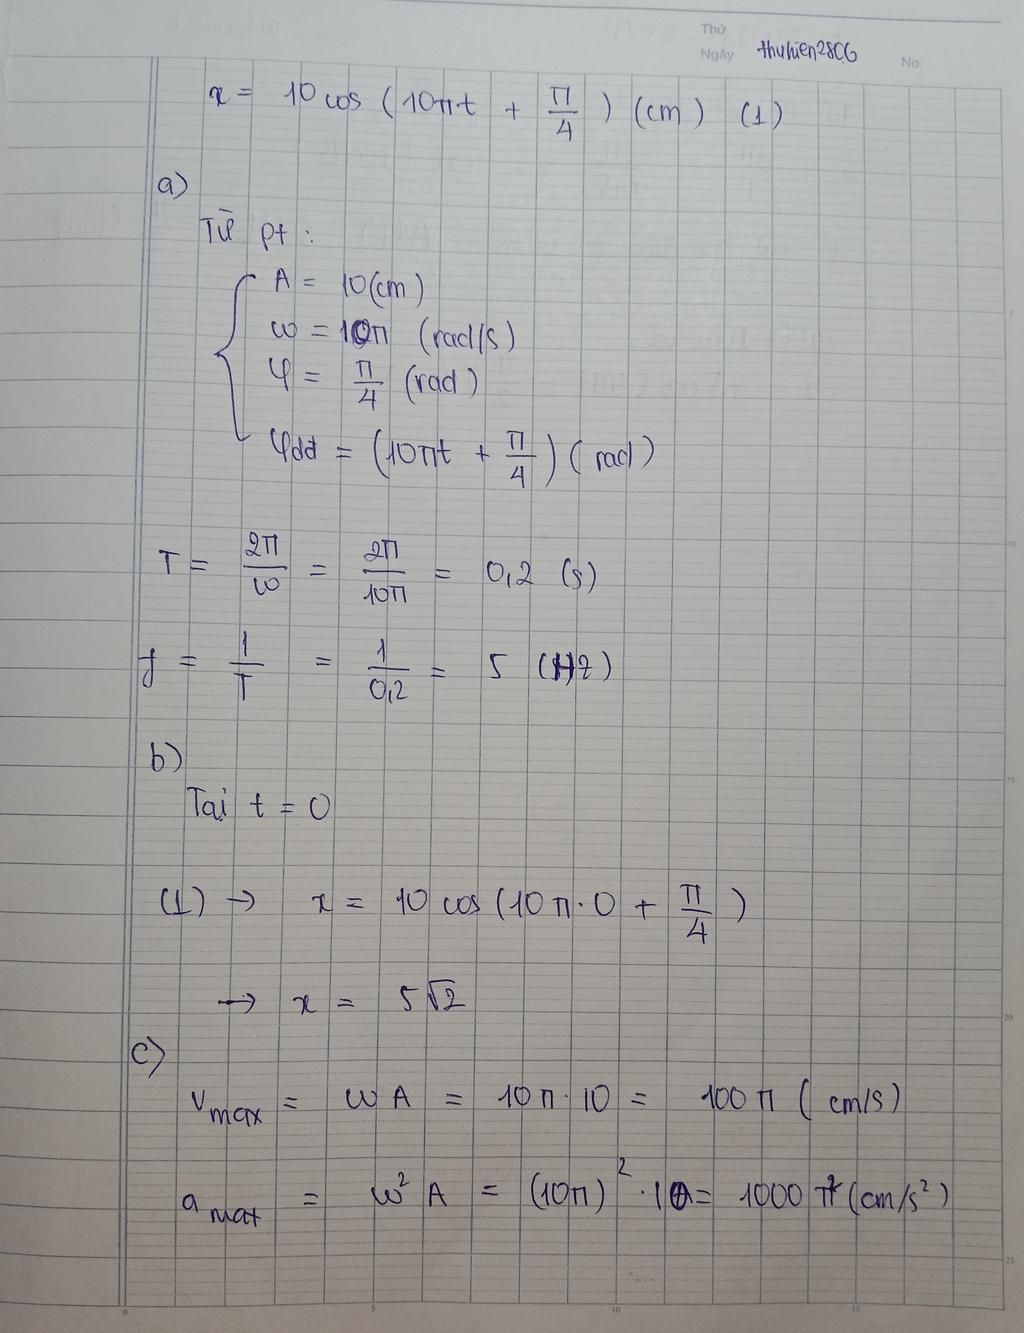 Thứ
Ngày thuhien2806 No.
x = 10 cos (10πt + π/4) (cm) (1)
a)
Từ pt :
A = 10(cm)
ω = 10π (rad/s)
φ = π/4 (rad)
φdđ = (10πt + π/4) (rad)
T = 2π/ω = 2π/10π = 0,2 (s)
f = 1/T = 1/0,2 = 5 (Hz)
b)
Tại t = 0
(1) → x = 10 cos (10π·0 + π/4)
→ x = 5√2
c)
v max = ωA = 10π·10 = 100π (cm/s)
a max = ω²A = (10π)²·10 = 1000π² (cm/s²)
5
10
15
20
25
0 5 10 15